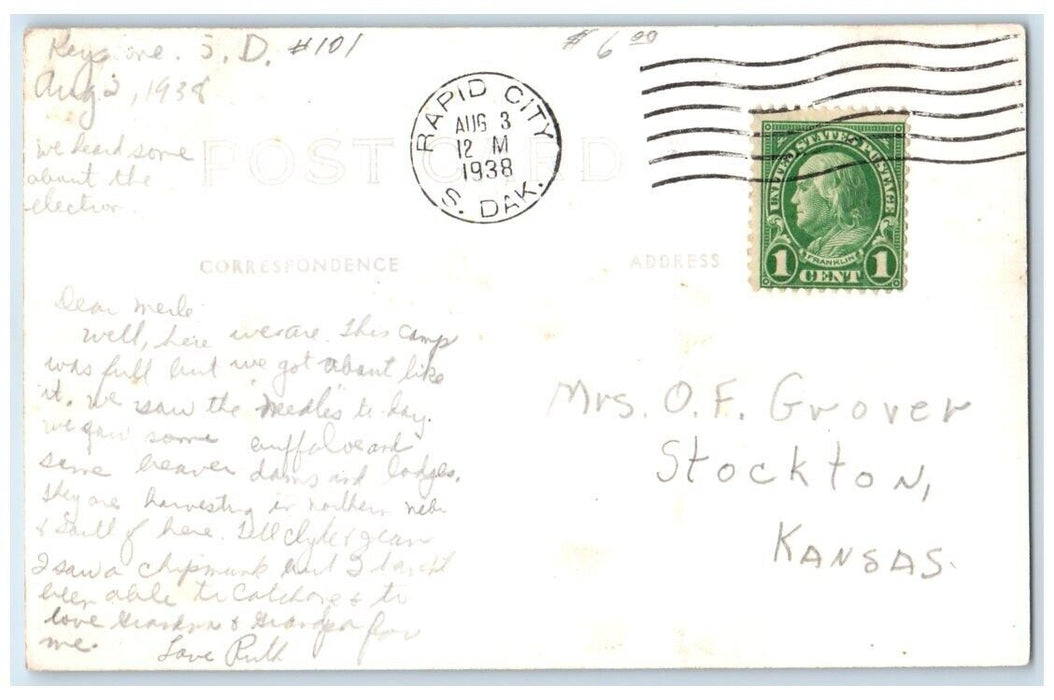 Keystone. S. D. #101
$6.00
Aug 2, 1938
RAPID CITY
AUG 3
12 M
1938
S. DAK.
we heard some
about the
election.
POST CARD
UNITED STATES POSTAGE
FRANKLIN
1 CENT 1
CORRESPONDENCE
ADDRESS
Dear Merle
Well, here we are. This camp
was full but we got about like
it. we saw the "Needles" to day.
we saw some buffaloe and
some beaver dams and lodges.
They are harvesting in northern nebr
& South of here. Tell Clyde & Jean
I saw a chipmunk but I haven't
been able to catch one & to
love Grandma & Grandpa for
me.
Love Ruth
Mrs. O.F. Grover
Stockton,
Kansas.